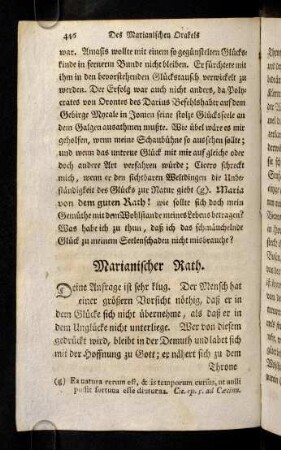 446 Des Marianischen Orakels
war. Amasis wollte mit einem so gegünstelten Glücks-
kinde in fernerm Bunde nicht bleiben. Er fürchtete mit
ihm in den bevorstehenden Glückstausch verwickelt zu
werden. Der Erfolg war auch nicht anders, da Poly-
crates von Orontes des Darius Befehlshaber auf dem
Gebirge Mycale in Jonien seine stolze Glücksseele an
dem Galgen ausathmen mußte. Wie übel wäre es mir
geholfen, wenn meine Schaubühne so aussehen sollte;
und wenn das untreue Glück mit mir auf gleiche oder
doch andere Art verfahren würde; Cicero schreckt
mich, wenn er den sichtbaren Weltdingen die Unbe-
ständigkeit des Glücks zur Natur giebt (g). Maria
von dem guten Rath! wie sollte sich doch mein
Gemüthe mit dem Wohlstande meines Lebens betragen?
Was habe ich zu thun, daß ich das schmäuchelnde
Glück zu meinem Seelenschaden nicht misbrauche?
Marianischer Rath.
Deine Anfrage ist sehr klug. Der Mensch hat
einer größern Vorsicht nöthig, daß er in
dem Glücke sich nicht übernehme, als daß er in
dem Unglücke nicht unterliege. Wer von diesem
gedrückt wird, bleibt in der Demuth und labet sich
mit der Hoffnung zu Gott; er nähert sich zu dem
Throne
(g) Ea natura rerum est, & is temporum cursus, ut nulli
possit fortuna esse diuturna. Cic. ep. 5. ad Cæcinn.